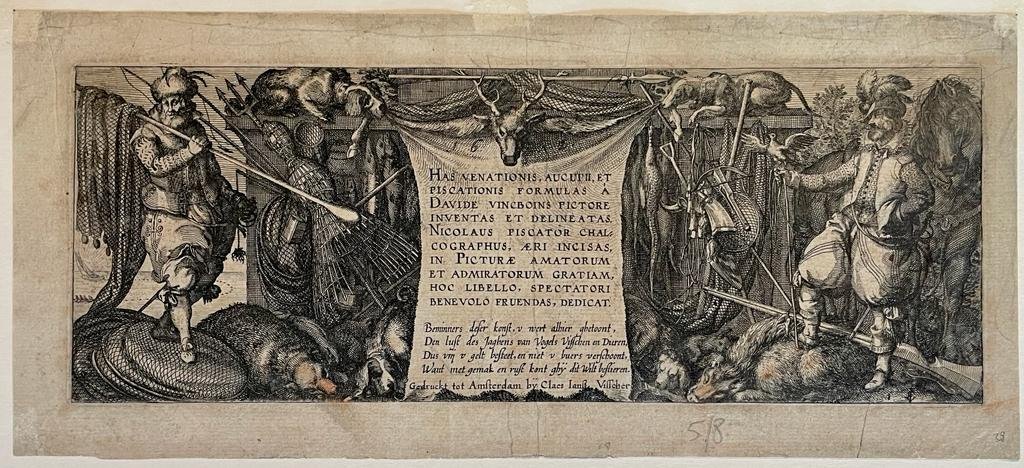 16
HAS VENATIONIS, AUCUPII, ET
PISCATIONIS FORMULAS À
DAVIDE VINCBOINS PICTORE
INVENTAS ET DELINEATAS,
NICOLAUS PISCATOR CHAL-
COGRAPHUS, ÆRI INCISAS,
IN PICTURÆ AMATORUM
ET ADMIRATORUM GRATIAM,
HOC LIBELLO, SPECTATORI
BENEVOLO FRUENDAS, DEDICAT.
Beminners deser konst, v wert alhier ghetoont,
Den lust des Jaghens van Vogels Visschen en Dieren,
Dus vry v gelt besteet, en niet v buers verschoont,
Want met gemak en rust kont ghy dit Wilt bestieren.
Gedruckt tot Amsterdam by Claes Jansz. Visscher
5/8
28